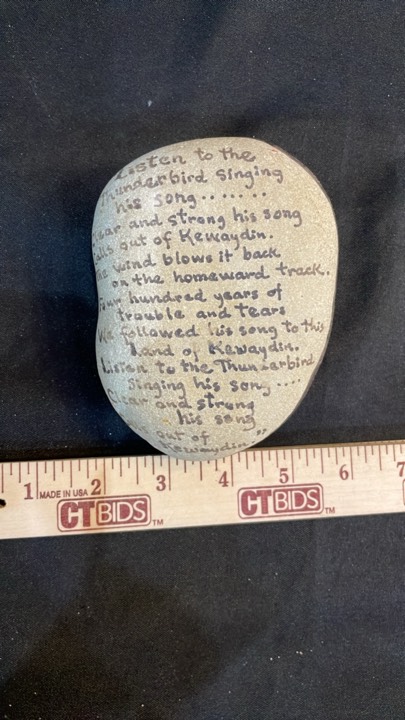 Listen to the
Thunderbird Singing
his song........
Clear and strong his song
calls out of Kewaydin.
The wind blows it back
on the homeward track.
Four hundred years of
trouble and tears
We followed his song to this
Land of Kewaydin.
Listen to the Thunderbird
Singing his song ....
Clear and strong
his song
out of
Kewaydin..."
1 2 3 4 5 6 7
MADE IN USA
CTBIDS TM
CTBIDS TM